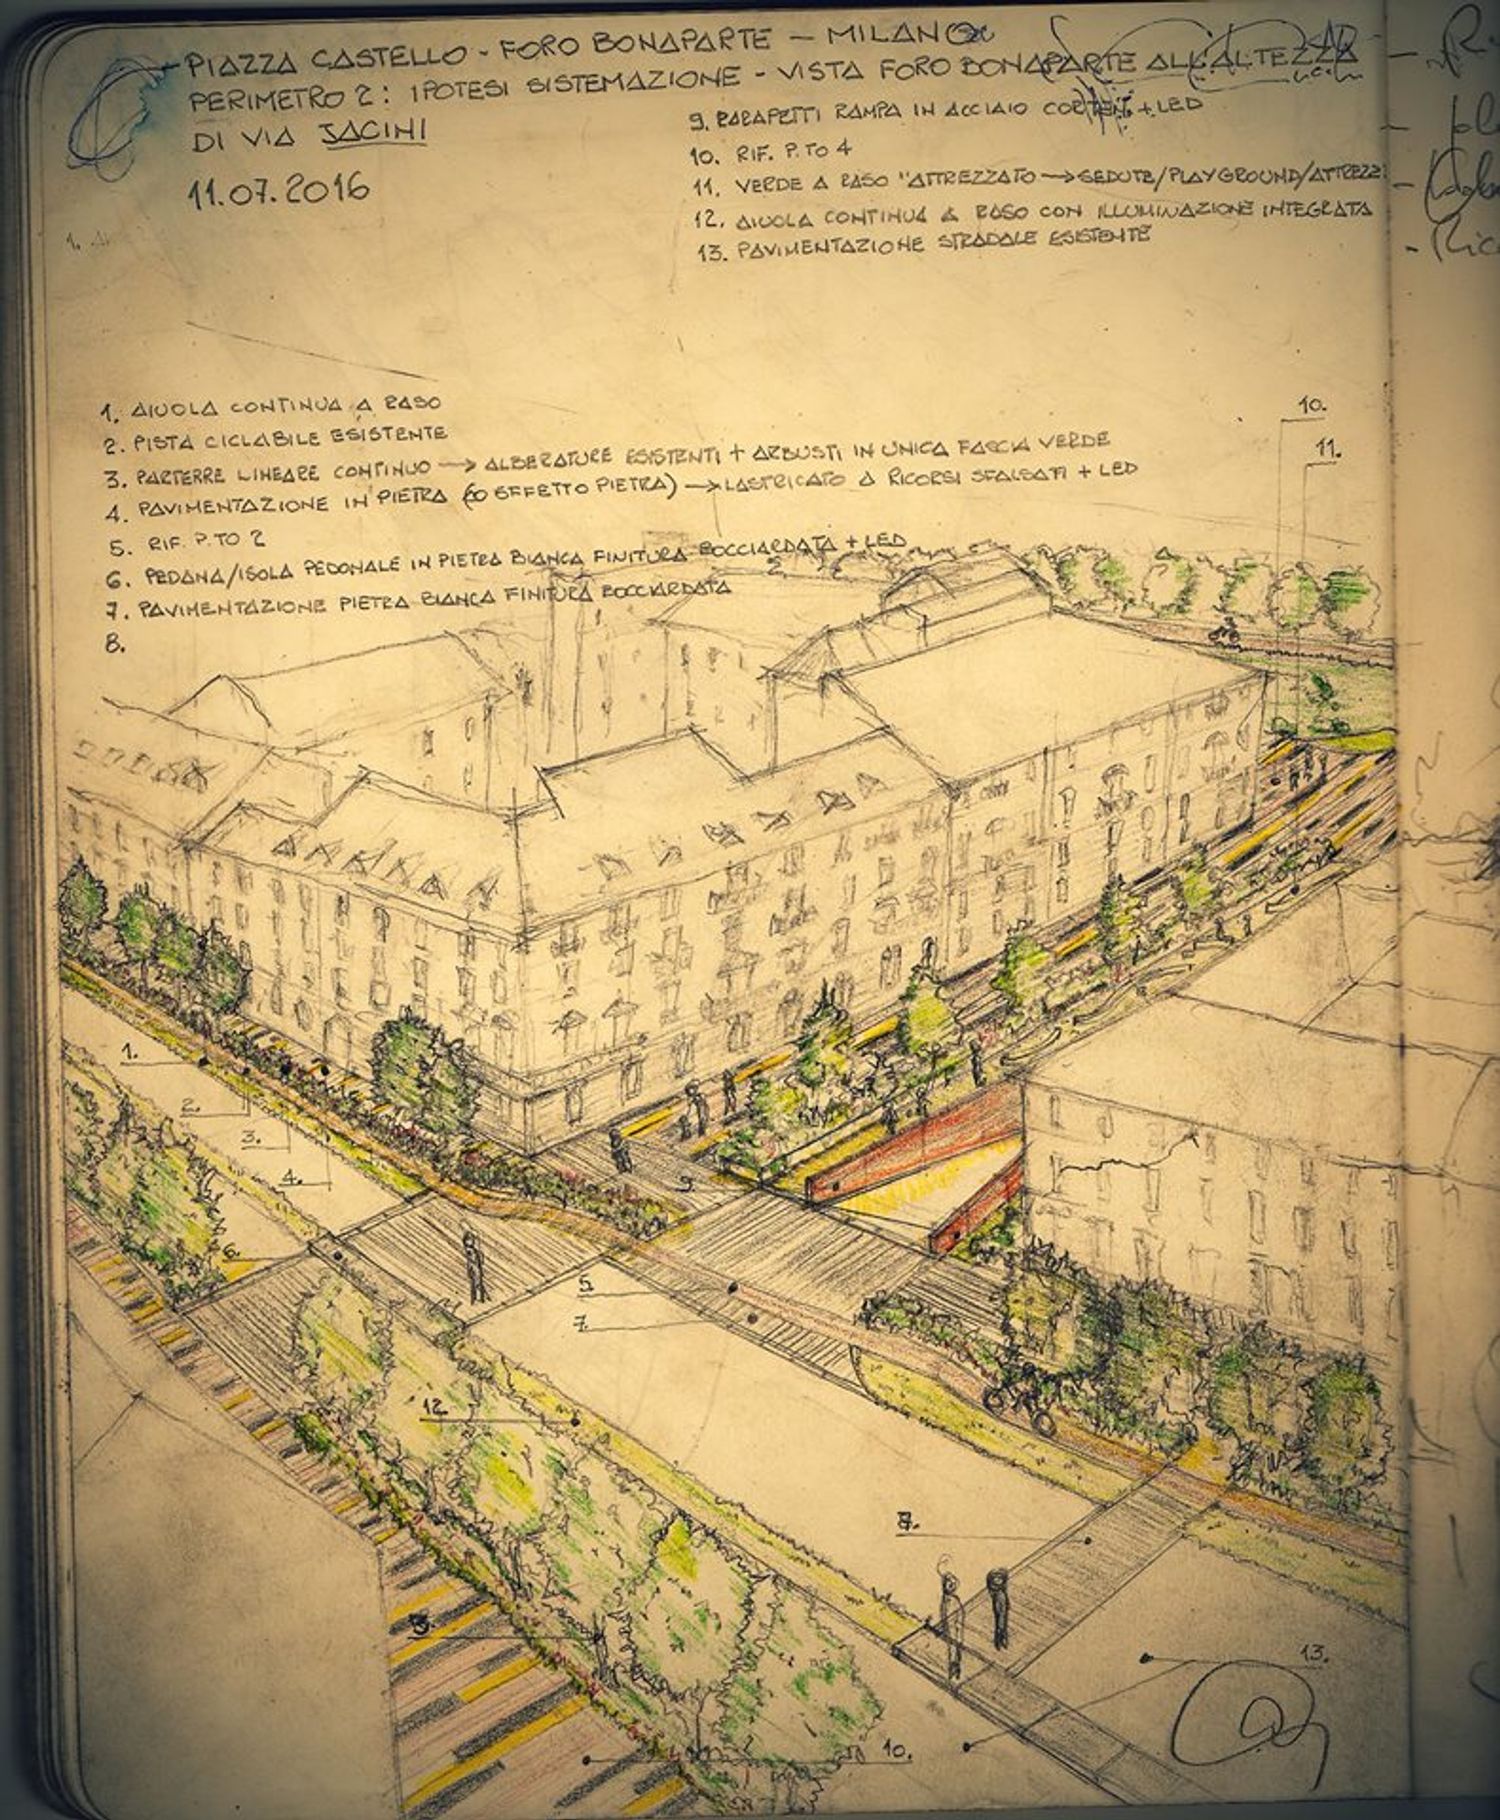 PIAZZA CASTELLO - FORO BONAPARTE - MILANO
PERIMETRO 2: IPOTESI SISTEMAZIONE - VISTA FORO BONAPARTE ALL'ALTEZZA
DI VIA JACINI
11.07.2016
9. PARAPETTI RAMPA IN ACCIAIO CORTEN + LED
10. RIF. P.TO 4
11. VERDE A RASO "ATTREZZATO → SEDUTE/PLAYGROUND/ATTREZZI
12. AIUOLA CONTINUA A RASO CON ILLUMINAZIONE INTEGRATA
13. PAVIMENTAZIONE STRADALE ESISTENTE
1. AIUOLA CONTINUA A RASO
2. PISTA CICLABILE ESISTENTE
3. PARTERRE LINEARE CONTINUO → ALBERATURE ESISTENTI + ARBUSTI IN UNICA FASCIA VERDE
4. PAVIMENTAZIONE IN PIETRA (O EFFETTO PIETRA) → LASTRICATO A RICORSI SFALSATI + LED
5. RIF. P.TO 2
6. PEDANA/ISOLA PEDONALE IN PIETRA BIANCA FINITURA BOCCIARDATA + LED
7. PAVIMENTAZIONE PIETRA BIANCA FINITURA BOCCIARDATA
8.
10.
11.
1.
2.
3.
4.
9.
6.
5.
7.
12.
8.
3.
13.
10.